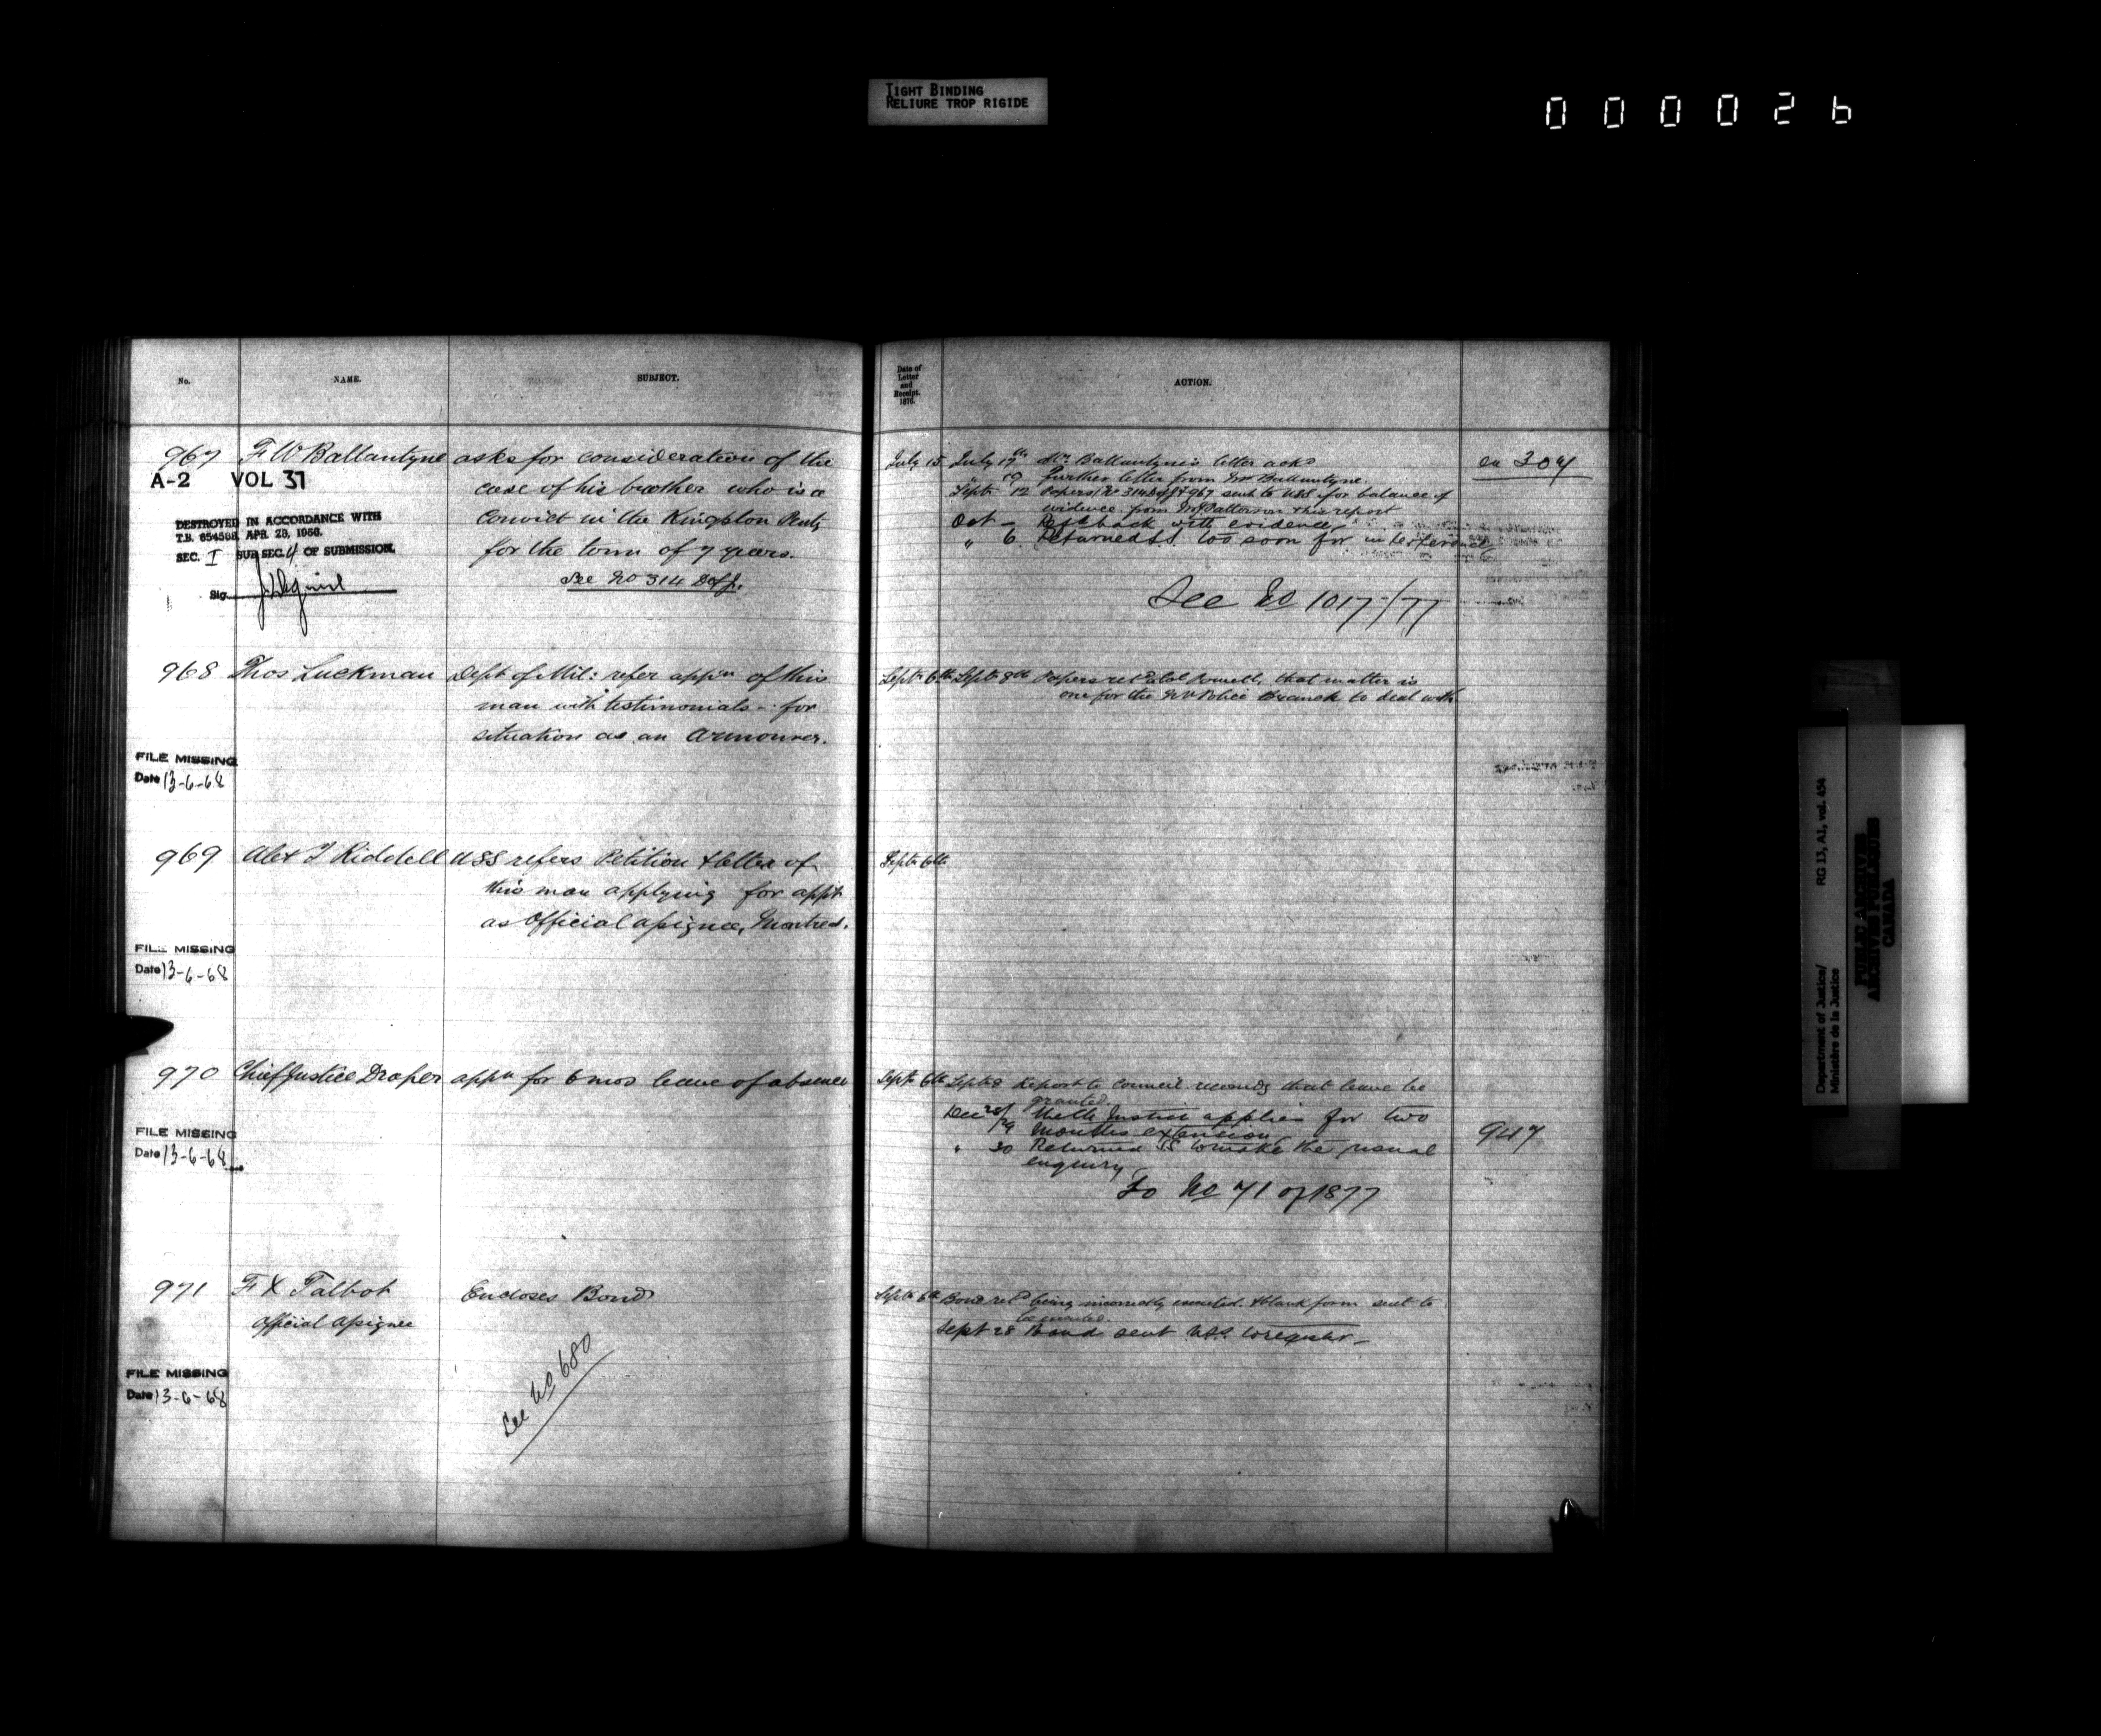 TIGHT BINDING
RELIURE TROP RIGIDE
000026
No.
NAME.
SUBJECT.
967
F W Ballantyne
asks for consideration of the
case of his brother who is a
convict in the Kingston Penty
for the term of 7 years.
See No 314
A-2 VOL 37
DESTROYED IN ACCORDANCE WITH
T.B. 654598, APR. 28, 1966.
SEC. I SUB SEC. 4 OF SUBMISSION.
Sig.
968
Thos Luckman
Dept of Mil: refer appn of this
man with testimonials - for
situation as an Armourer.
FILE MISSING
Date 13-6-68
969
Alex T Riddell
USS refers Petition & letter of
this man applying for appt
as Official assignee, Montreal.
FILE MISSING
Date 13-6-68
970
Chief Justice Draper
appn for 6 mos leave of absence
FILE MISSING
Date 13-6-68
971
F X Talbot
Official assignee
Encloses Bond
See No 680
FILE MISSING
Date 13-6-68
Date of
Letter
and
Receipt.
1876.
ACTION.
July 15
July 17th Mr. Ballantyne's letter ackd
" 19 Further letter from Mr Ballantyne
Sept 12 Papers 967 sent to USS for balance of
evidence from Mr Patterson & his report
Oct - back with evidence
" 6 Returned SS too soon for interference
See No 1017/77
on 304
Sept 6th
Sept 8th Papers retd Powell, that matter is
one for the Police Branch to deal with
Sept 6th
Sept 6th
Sept 8 Report to Council recomdg that leave be
granted.
Dec 28/29 Justice applies for two
months extension
" 30 Returned SS to make the usual
enquiry
To No 71 of 1877
947
Sept 6th
Bond retd being incorrectly executed. & blank form sent to
be executed.
Sept 28 Bond sent USS to register -
Department of Justice/
Ministère de la Justice
RG 13, A1, vol. 454
PUBLIC ARCHIVES
ARCHIVES PUBLIQUES
CANADA